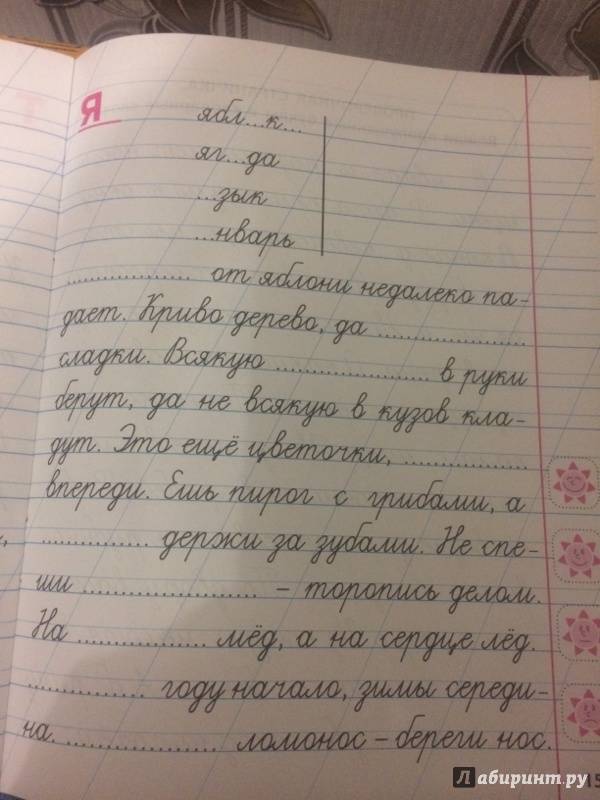 Я
ябл...к...
яг...да
...зык
...нварь
.................. от яблони недалеко па-
дает. Криво дерево, да ......................
сладки. Всякую ....................... в руки
берут, да не всякую в кузов кла-
дут. Это ещё цветочки, ...................
впереди. Ешь пирог с грибами, а
................ держи за зубами. Не спе-
ши .......................... – торопись делом.
На ................... мёд, а на сердце лёд.
.................. году начало, зимы середи-
на. ....................... ломонос – береги нос.
Лабиринт.ру